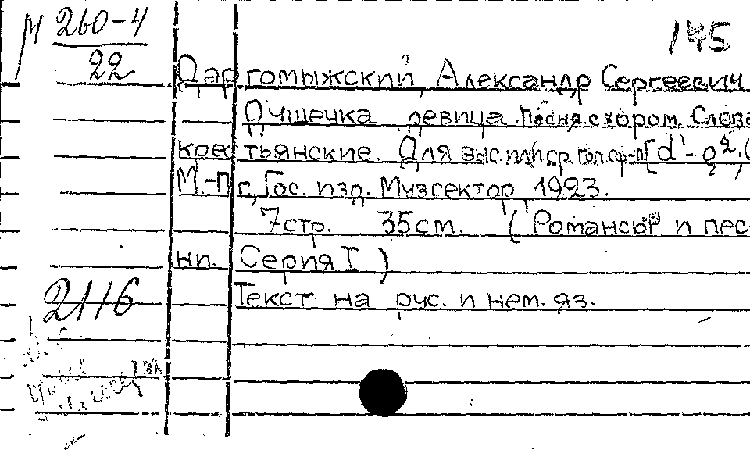 М 260-4
22
145
Даргомыжский, Александр Сергеевич
Душечка девица. Песня с хором. Слова
крестьянские. Для выс. или ср. гол. с ф-п [d'-g²
М.-П г., Гос. изд. Музсектор 1923.
7 стр. 35 см. (Романсы и пес
ни. Серия I)
2116
Текст на рус. и нем. яз.